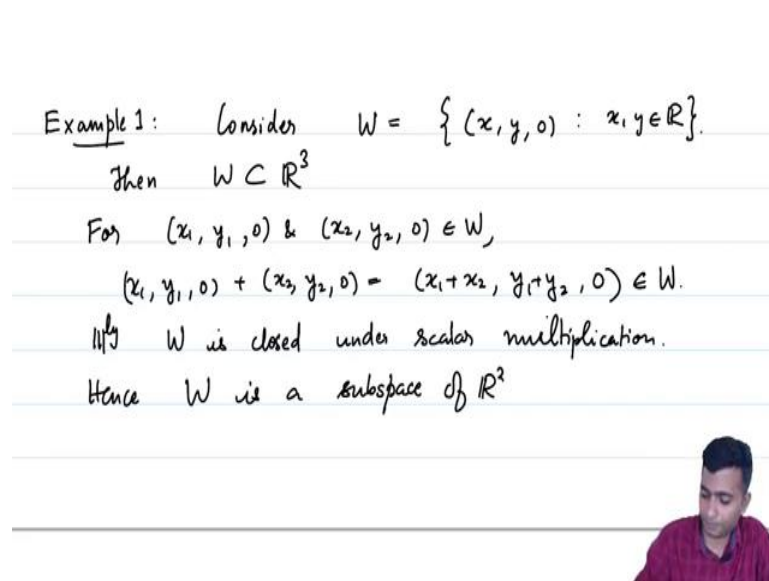 Example 1: Consider W = { (x, y, 0) : x, y ∈ ℝ}.
Then W ⊂ ℝ³
For (x₁, y₁, 0) & (x₂, y₂, 0) ∈ W,
(x₁, y₁, 0) + (x₂, y₂, 0) = (x₁+x₂, y₁+y₂, 0) ∈ W.
|||ly W is closed under scalar multiplication.
Hence W is a subspace of ℝ³